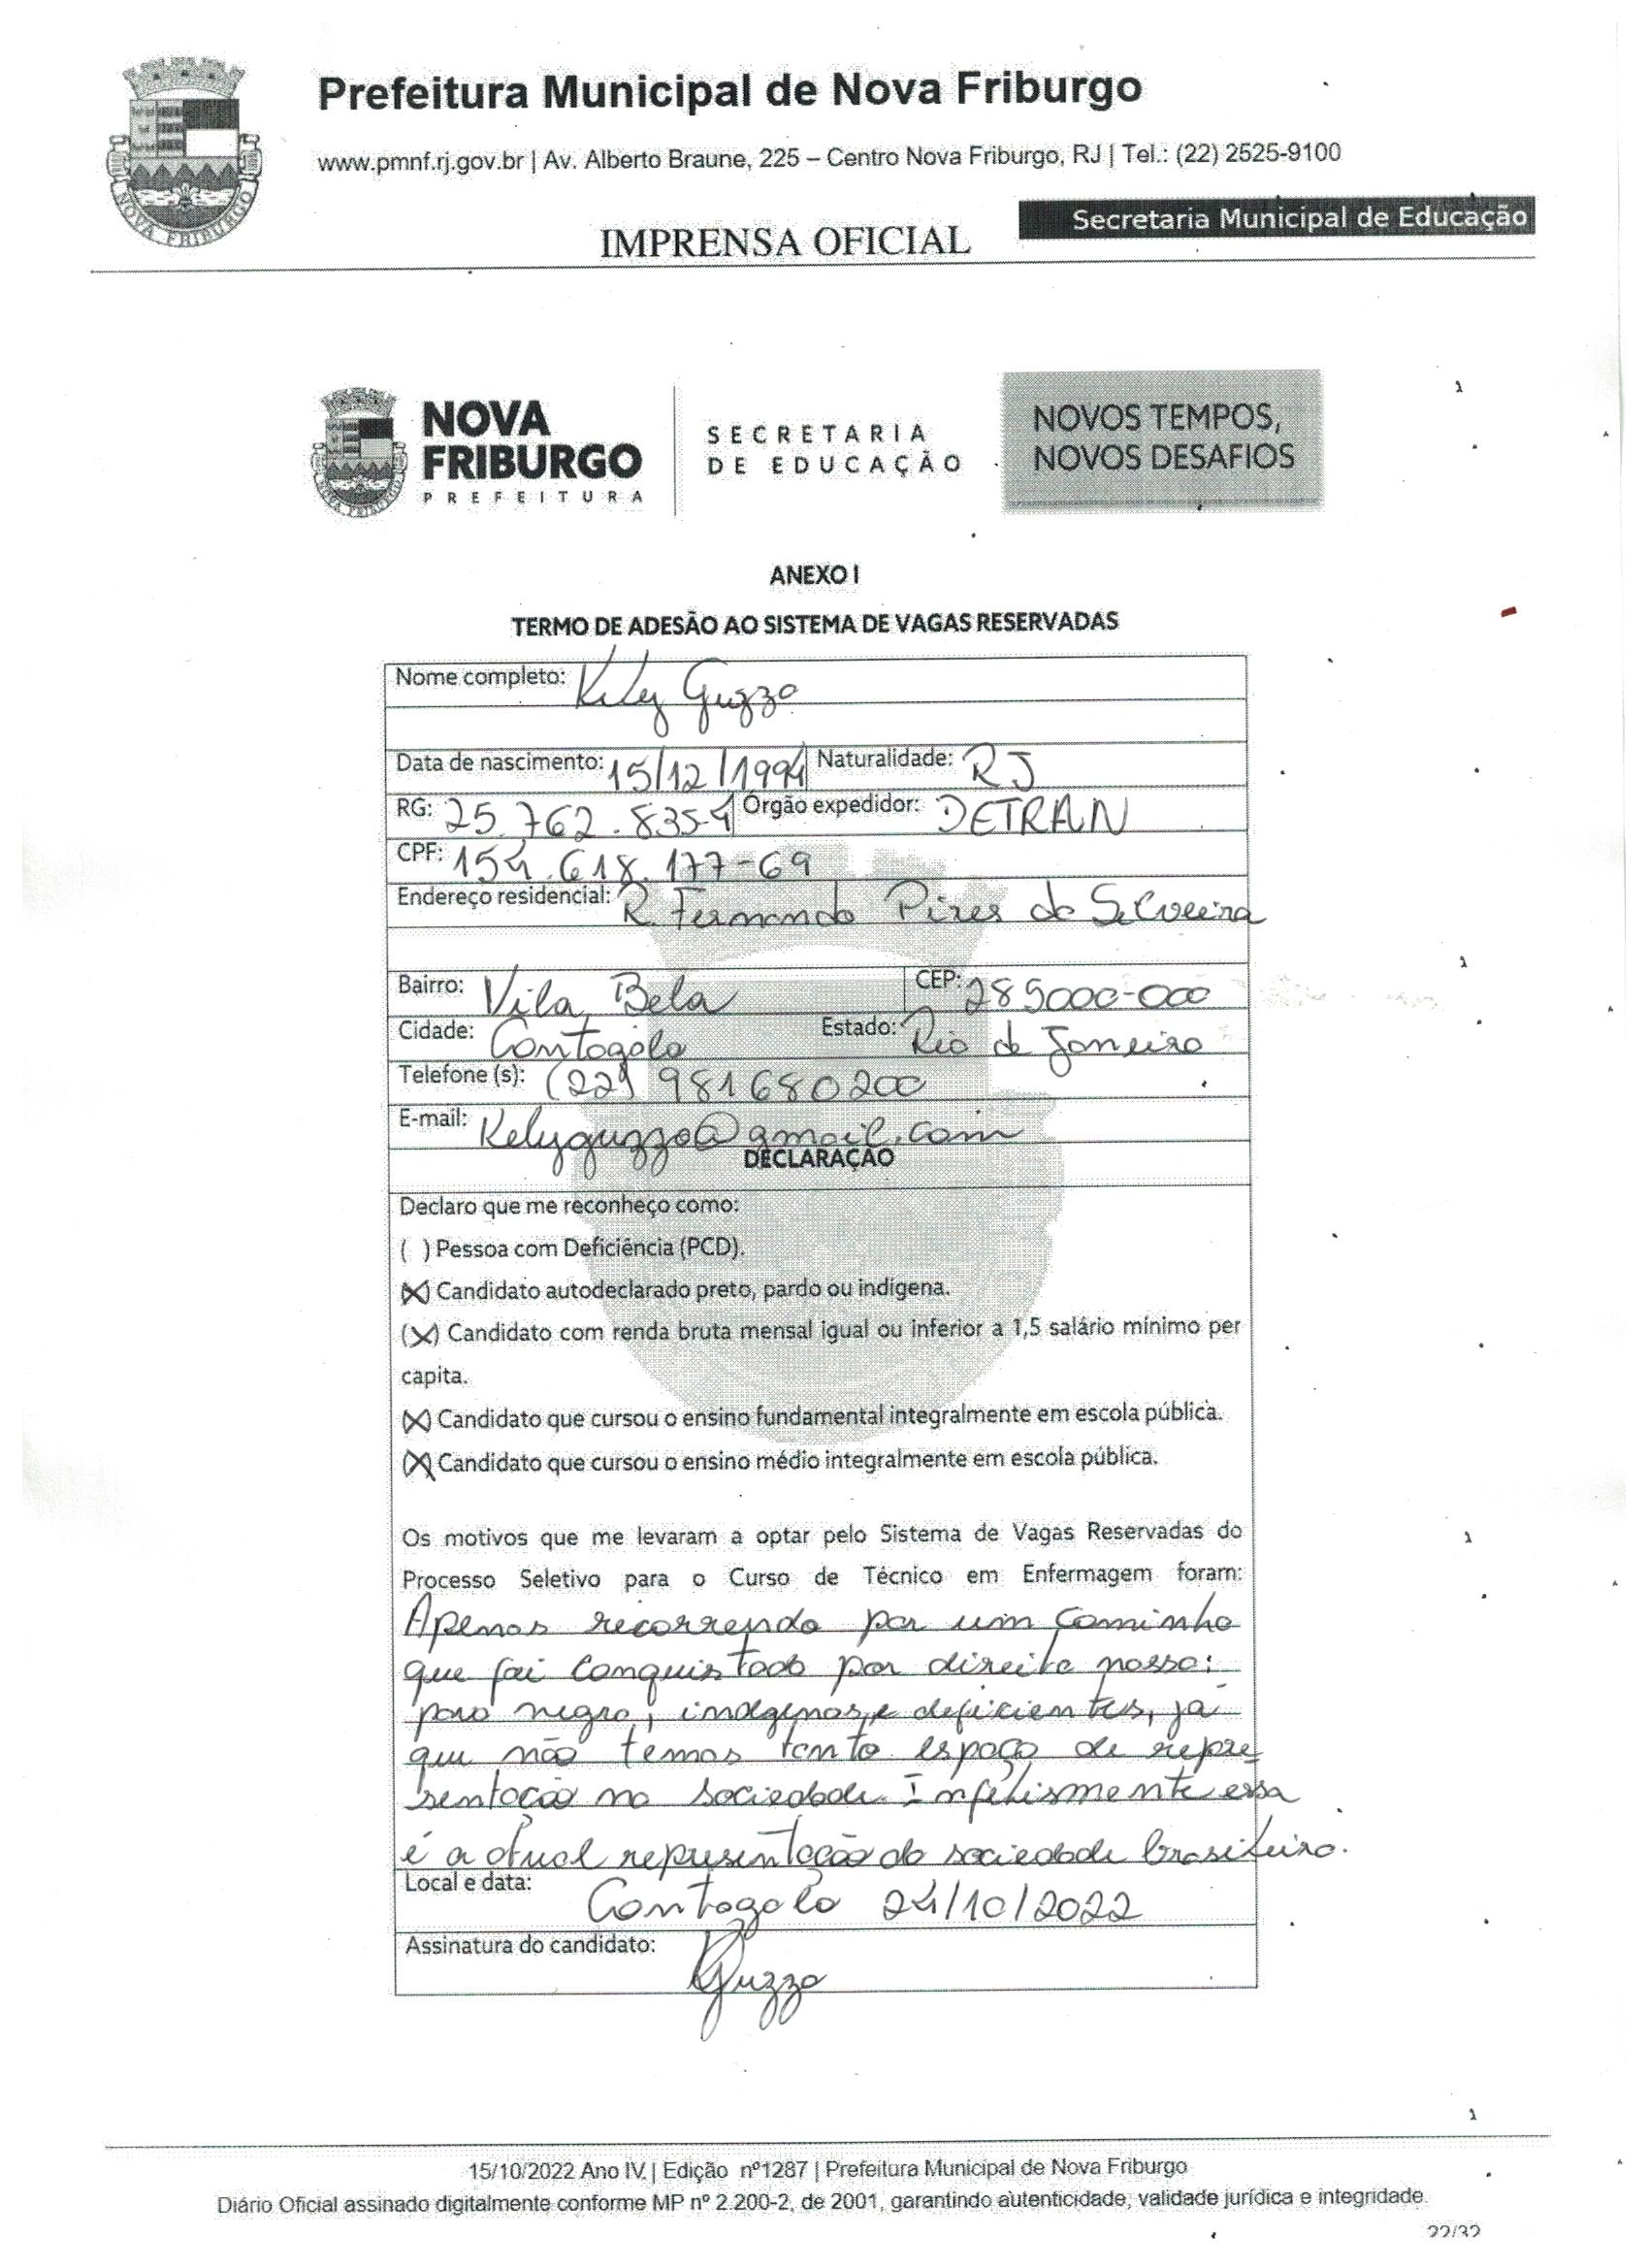 Prefeitura Municipal de Nova Friburgo
www.pmnf.rj.gov.br | Av. Alberto Braune, 225 – Centro Nova Friburgo, RJ | Tel.: (22) 2525-9100
Secretaria Municipal de Educação
IMPRENSA OFICIAL
NOVA FRIBURGO
NOVA
FRIBURGO
PREFEITURA
SECRETARIA
DE EDUCAÇÃO
NOVOS TEMPOS,
NOVOS DESAFIOS
ANEXO I
TERMO DE ADESÃO AO SISTEMA DE VAGAS RESERVADAS
Nome completo: Kely Guzzo
Data de nascimento: 15/12/1994 Naturalidade: RJ
RG: 25.762.835-4 Órgão expedidor: DETRAN
CPF: 154.618.177-69
Endereço residencial: R. Fernando Pires da Silveira
Bairro: Vila Bela CEP: 285000-000
Cidade: Cantagalo Estado: Rio de Janeiro
Telefone (s): (22) 981680200
E-mail: Kelyguzzo@gmail.com
DECLARAÇÃO
Declaro que me reconheço como:
( ) Pessoa com Deficiência (PCD).
(X) Candidato autodeclarado preto, pardo ou indígena.
(X) Candidato com renda bruta mensal igual ou inferior a 1,5 salário mínimo per
capita.
(X) Candidato que cursou o ensino fundamental integralmente em escola pública.
(X) Candidato que cursou o ensino médio integralmente em escola pública.
Os motivos que me levaram a optar pelo Sistema de Vagas Reservadas do
Processo Seletivo para o Curso de Técnico em Enfermagem foram:
Apenas recorrendo por um caminho
que foi conquistado por direito nosso:
povo negro, indígenas e deficientes, já
que não temos tanto espaço de repre
sentação na sociedade. Infelismente essa
é a atual representação da sociedade brasileira.
Local e data: Cantagalo 24/10/2022
Assinatura do candidato: KGuzzo
15/10/2022 Ano IV | Edição nº1287 | Prefeitura Municipal de Nova Friburgo
Diário Oficial assinado digitalmente conforme MP nº 2.200-2, de 2001, garantindo autenticidade, validade jurídica e integridade.
22/32